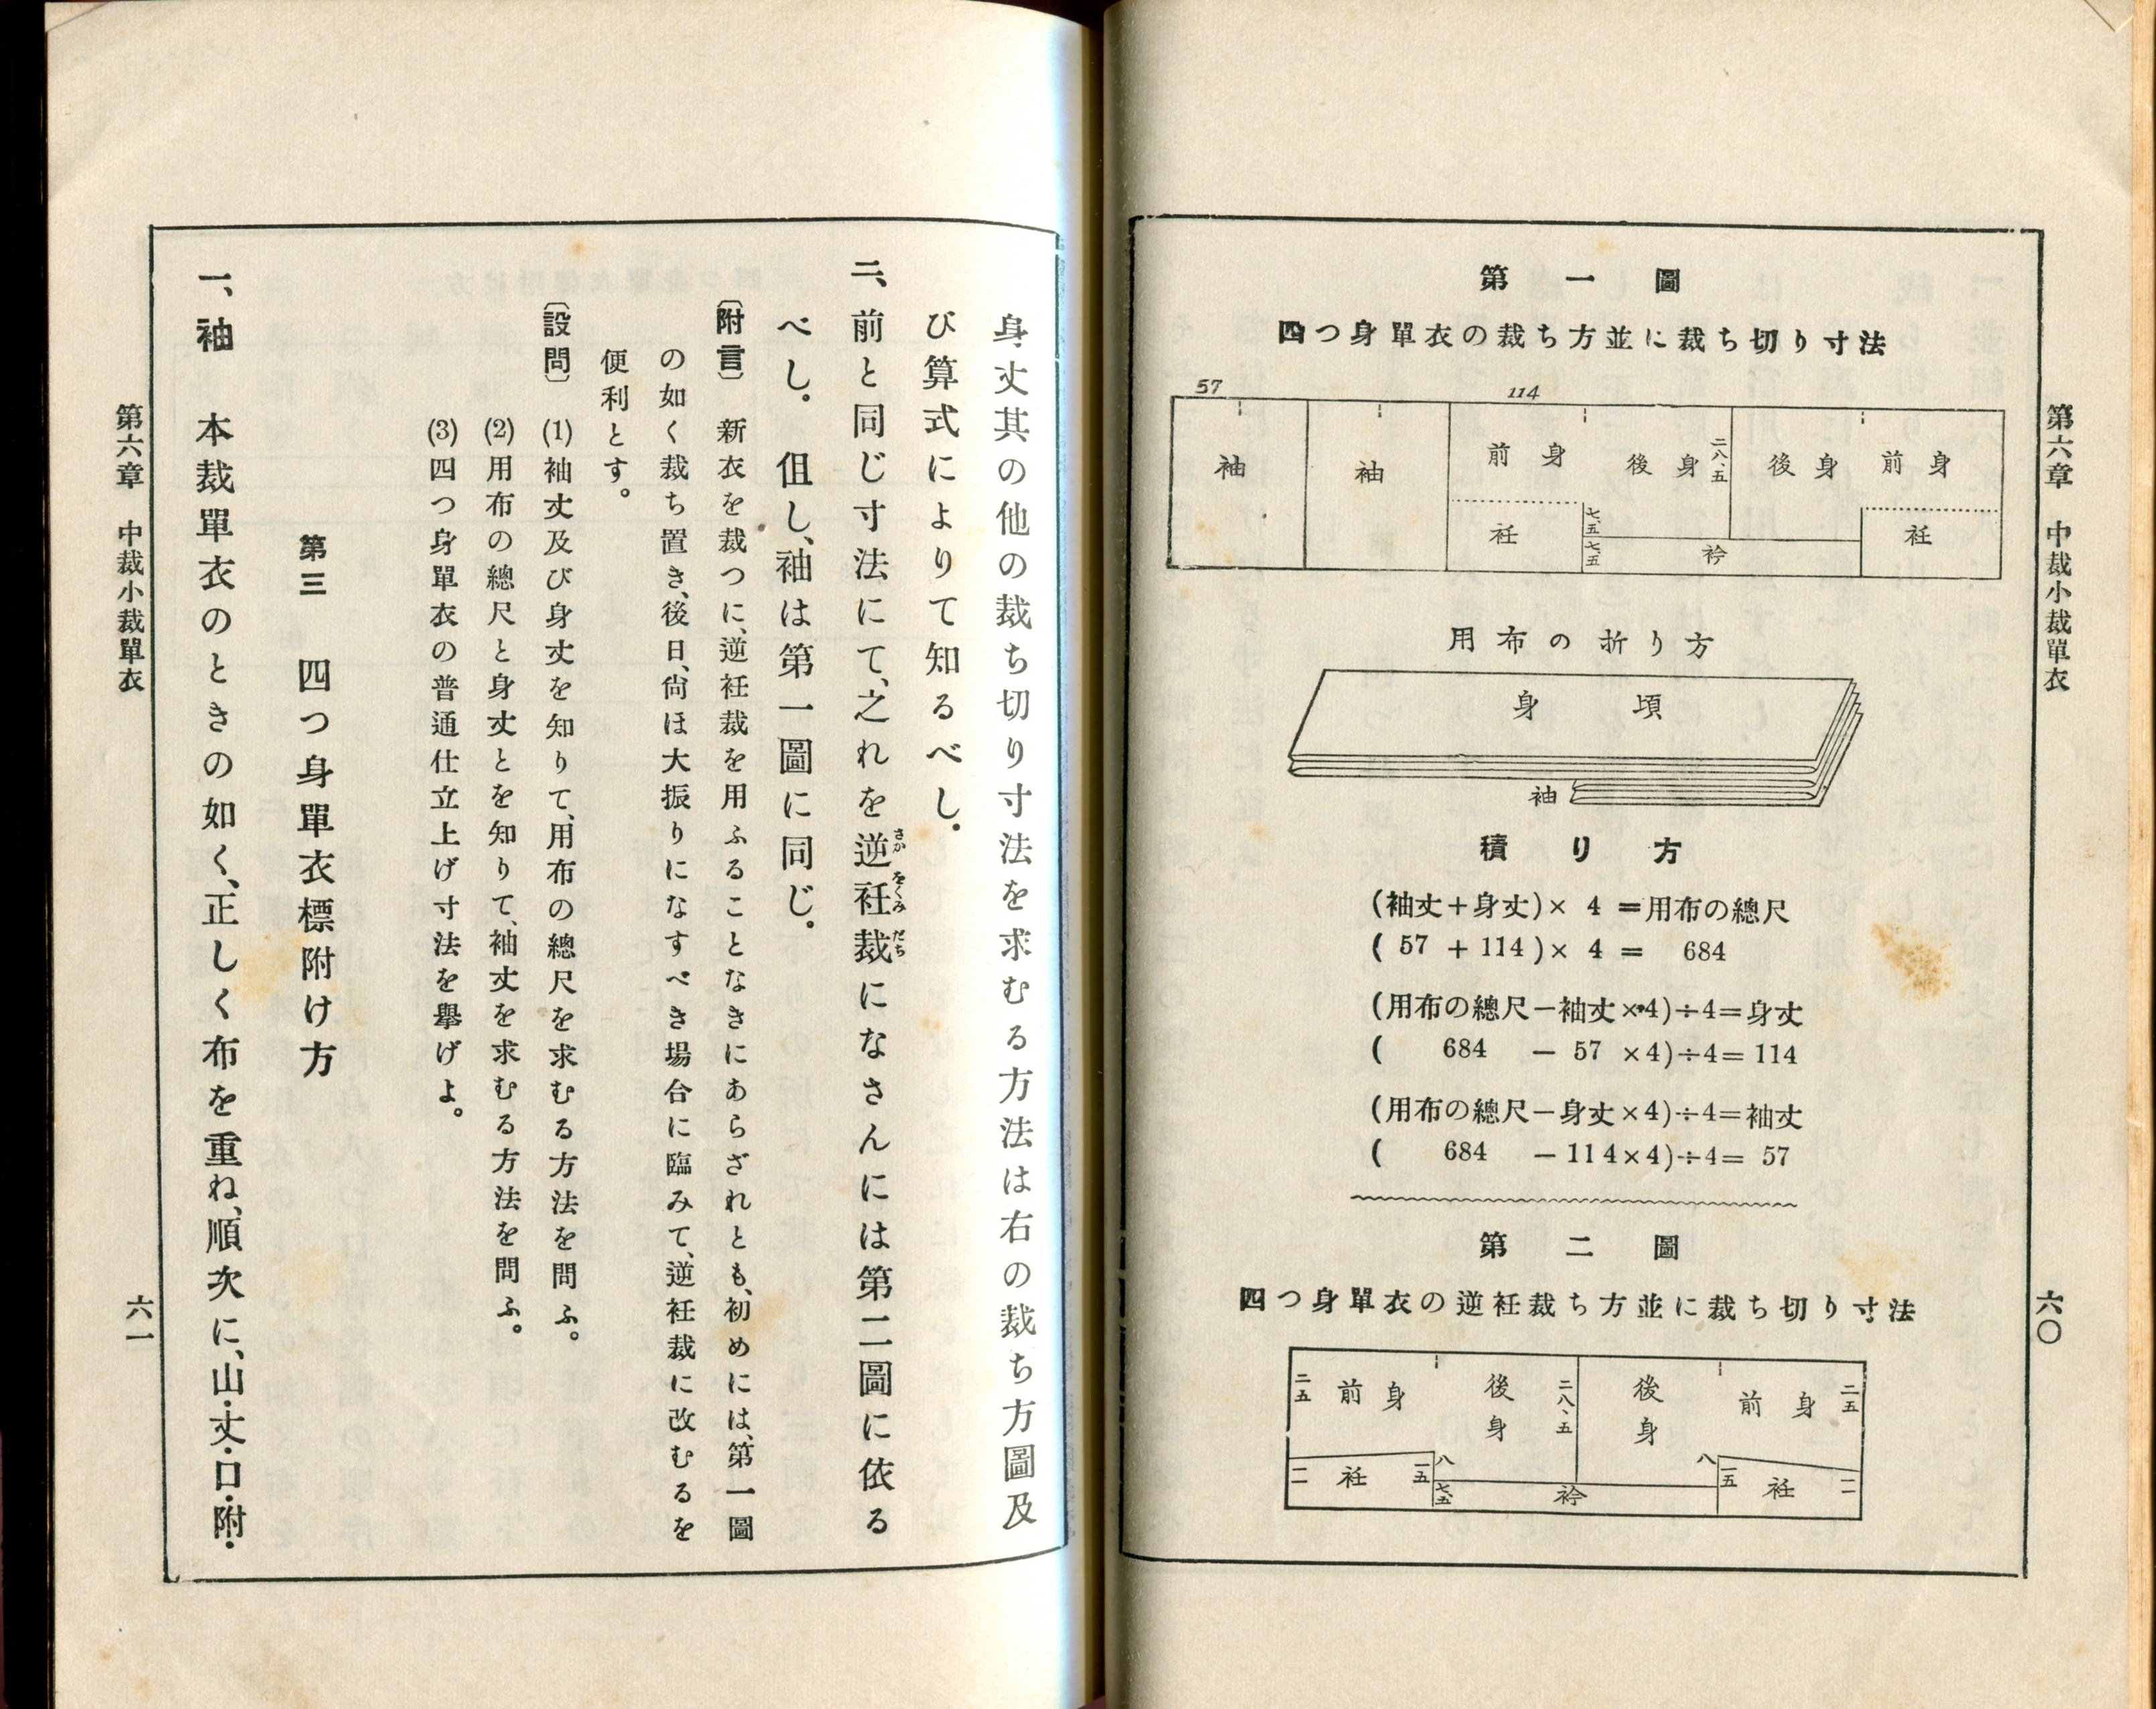 第六章　中裁小裁單衣
六〇
第一圖
四つ身單衣の裁ち方並に裁ち切り寸法
57
114
袖
袖
前身
衽
七、五
七五
後身
二八、五
後身
衿
前身
衽
用布の折り方
身頃
袖
積り方
(袖丈+身丈)× 4 =用布の總尺
( 57 + 114 )× 4 = 684
(用布の總尺−袖丈×4)÷4=身丈
( 684 − 57 ×4)÷4= 114
(用布の總尺−身丈×4)÷4=袖丈
( 684 − 114×4)÷4= 57
第二圖
四つ身單衣の逆衽裁ち方並に裁ち切り寸法
二五
前身
後身
二八、五
後身
前身
二五
一一
衽
一五
八
七、五
衿
八
一五
衽
一一
身丈其の他の裁ち切り寸法を求むる方法は右の裁ち方圖及
び算式によりて知るべし。
二、前と同じ寸法にて、之れを逆衽裁になさんには第二圖に依る
さか をくみ だち
べし。但し、袖は第一圖に同じ。
〔附言〕　新衣を裁つに、逆衽裁を用ふることなきにあらざれとも、初めには、第一圖
の如く裁ち置き、後日、尙ほ大振りになすべき場合に臨みて、逆衽裁に改むるを
便利とす。
〔設問〕　(1)袖丈及び身丈を知りて、用布の總尺を求むる方法を問ふ。
(2)用布の總尺と身丈とを知りて、袖丈を求むる方法を問ふ。
(3)四つ身單衣の普通仕立上げ寸法を擧げよ。
第三　四つ身單衣標附け方
一、袖　本裁單衣のときの如く、正しく布を重ね、順次に、山・丈・口・附・
第六章　中裁小裁單衣
六一